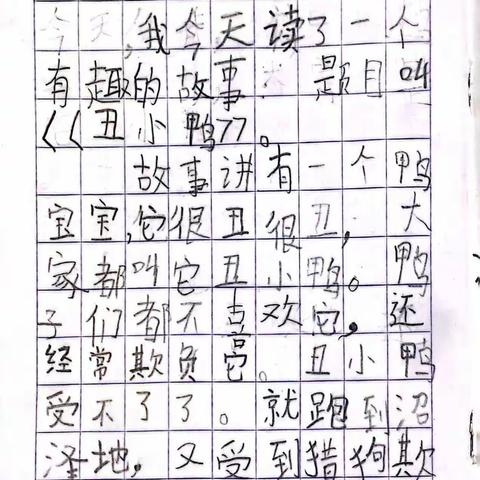 今天,我今天读了一个
有趣的故事. 题目叫
《丑小鸭》。
故事讲有一个鸭
宝宝,它很丑很丑,大
家都叫它丑小鸭。鸭
子们都不喜欢它,还
经常欺负它。丑小鸭
受不了了。就跑到沼
泽地,又受到猎狗欺